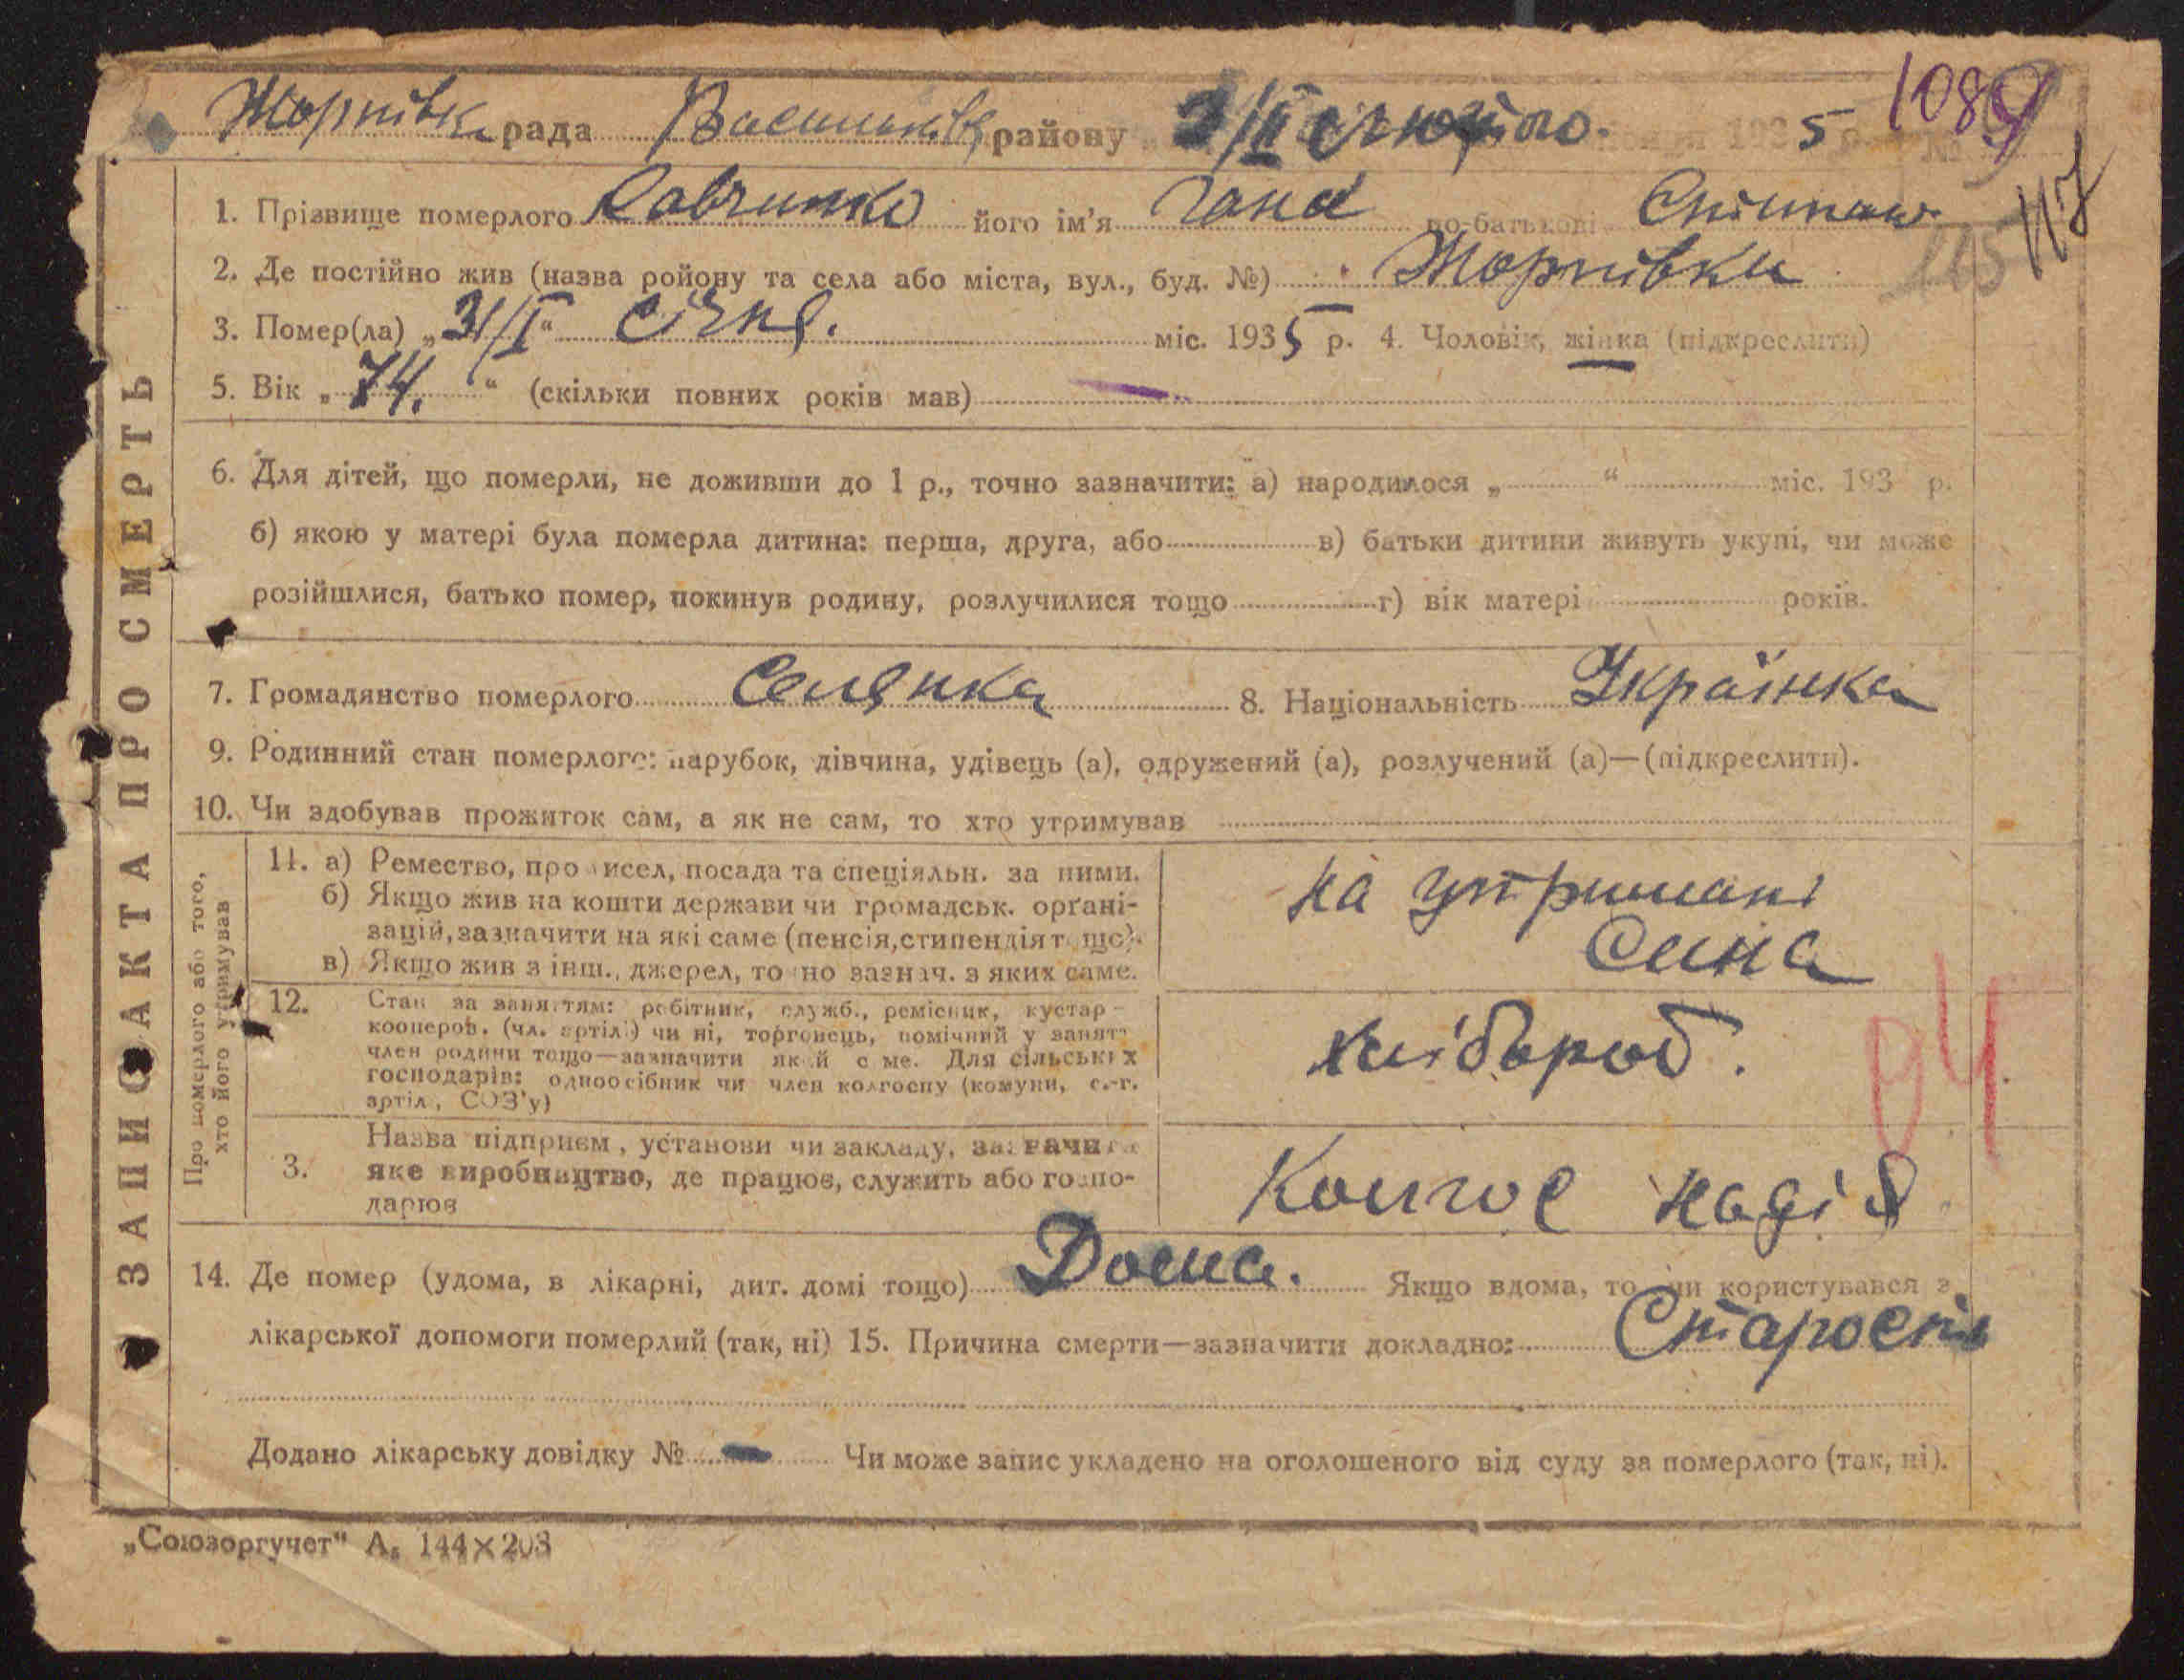 Жорнівка рада Васильків району „ 2/II лютого. 1935 р. № 1089
117
1. Прізвище померлого його ім'я Гана по-батькові Степан.
115
2. Де постійно жив (назва ройону та села або міста, вул., буд. №) Жорнівки
3. Помер(ла) „31/I“ січня. міс. 1935 р. 4. Чоловік, жінка (підкреслити)
5. Вік „74.“ (скільки повних років мав)
6. Для дітей, що померли, не доживши до 1 р., точно зазначити: а) народилося „ “ міс. 193 р.
б) якою у матері була померла дитина: перша, друга, або в) батьки дитини живуть укупі, чи може
розійшлися, батько помер, покинув родину, розлучилися тощо г) вік матері років.
7. Громадянство померлого Селянка 8. Національність Українка
9. Родинний стан померлого: парубок, дівчина, удівець (а), одружений (а), розлучений (а)—(підкреслити).
10. Чи здобував прожиток сам, а як не сам, то хто утримував
Про померлого або того, хто його утримував
11. а) Ремество, промисел, посада та спеціяльн. за ними.
б) Якщо жив на кошти держави чи громадськ. орґані-
зацій, зазначити на які саме (пенсія, стипендія тощо).
в) Якщо жив з інш., джерел, точно зазнач. з яких саме.
на утримані
Сина
12. Стан за заняттям: робітник, служб., ремісник, кустар-
кооперов. (чл. артілі) чи ні, торговець, помічний у занятт
член родини тощо—зазначити який саме. Для сільських
господарів: одноосібник чи член колгоспу (комуни, с.-г.
артіл, СОЗ'у)
хлібороб.
04
3. Назва підприєм, установи чи закладу, зазначити
яке виробництво, де працює, служить або госпо-
дарює
Колгос Надія
14. Де помер (удома, в лікарні, дит. домі тощо) Дома. Якщо вдома, то чи користувався з
лікарської допомоги померлий (так, ні) 15. Причина смерти—зазначити докладно: Старость
Додано лікарську довідку № — Чи може запис укладено на оголошеного від суду за померлого (так, ні).
ЗАПИС АКТА ПРО СМЕРТЬ
„Союзоргучет“ А₅ 144×203